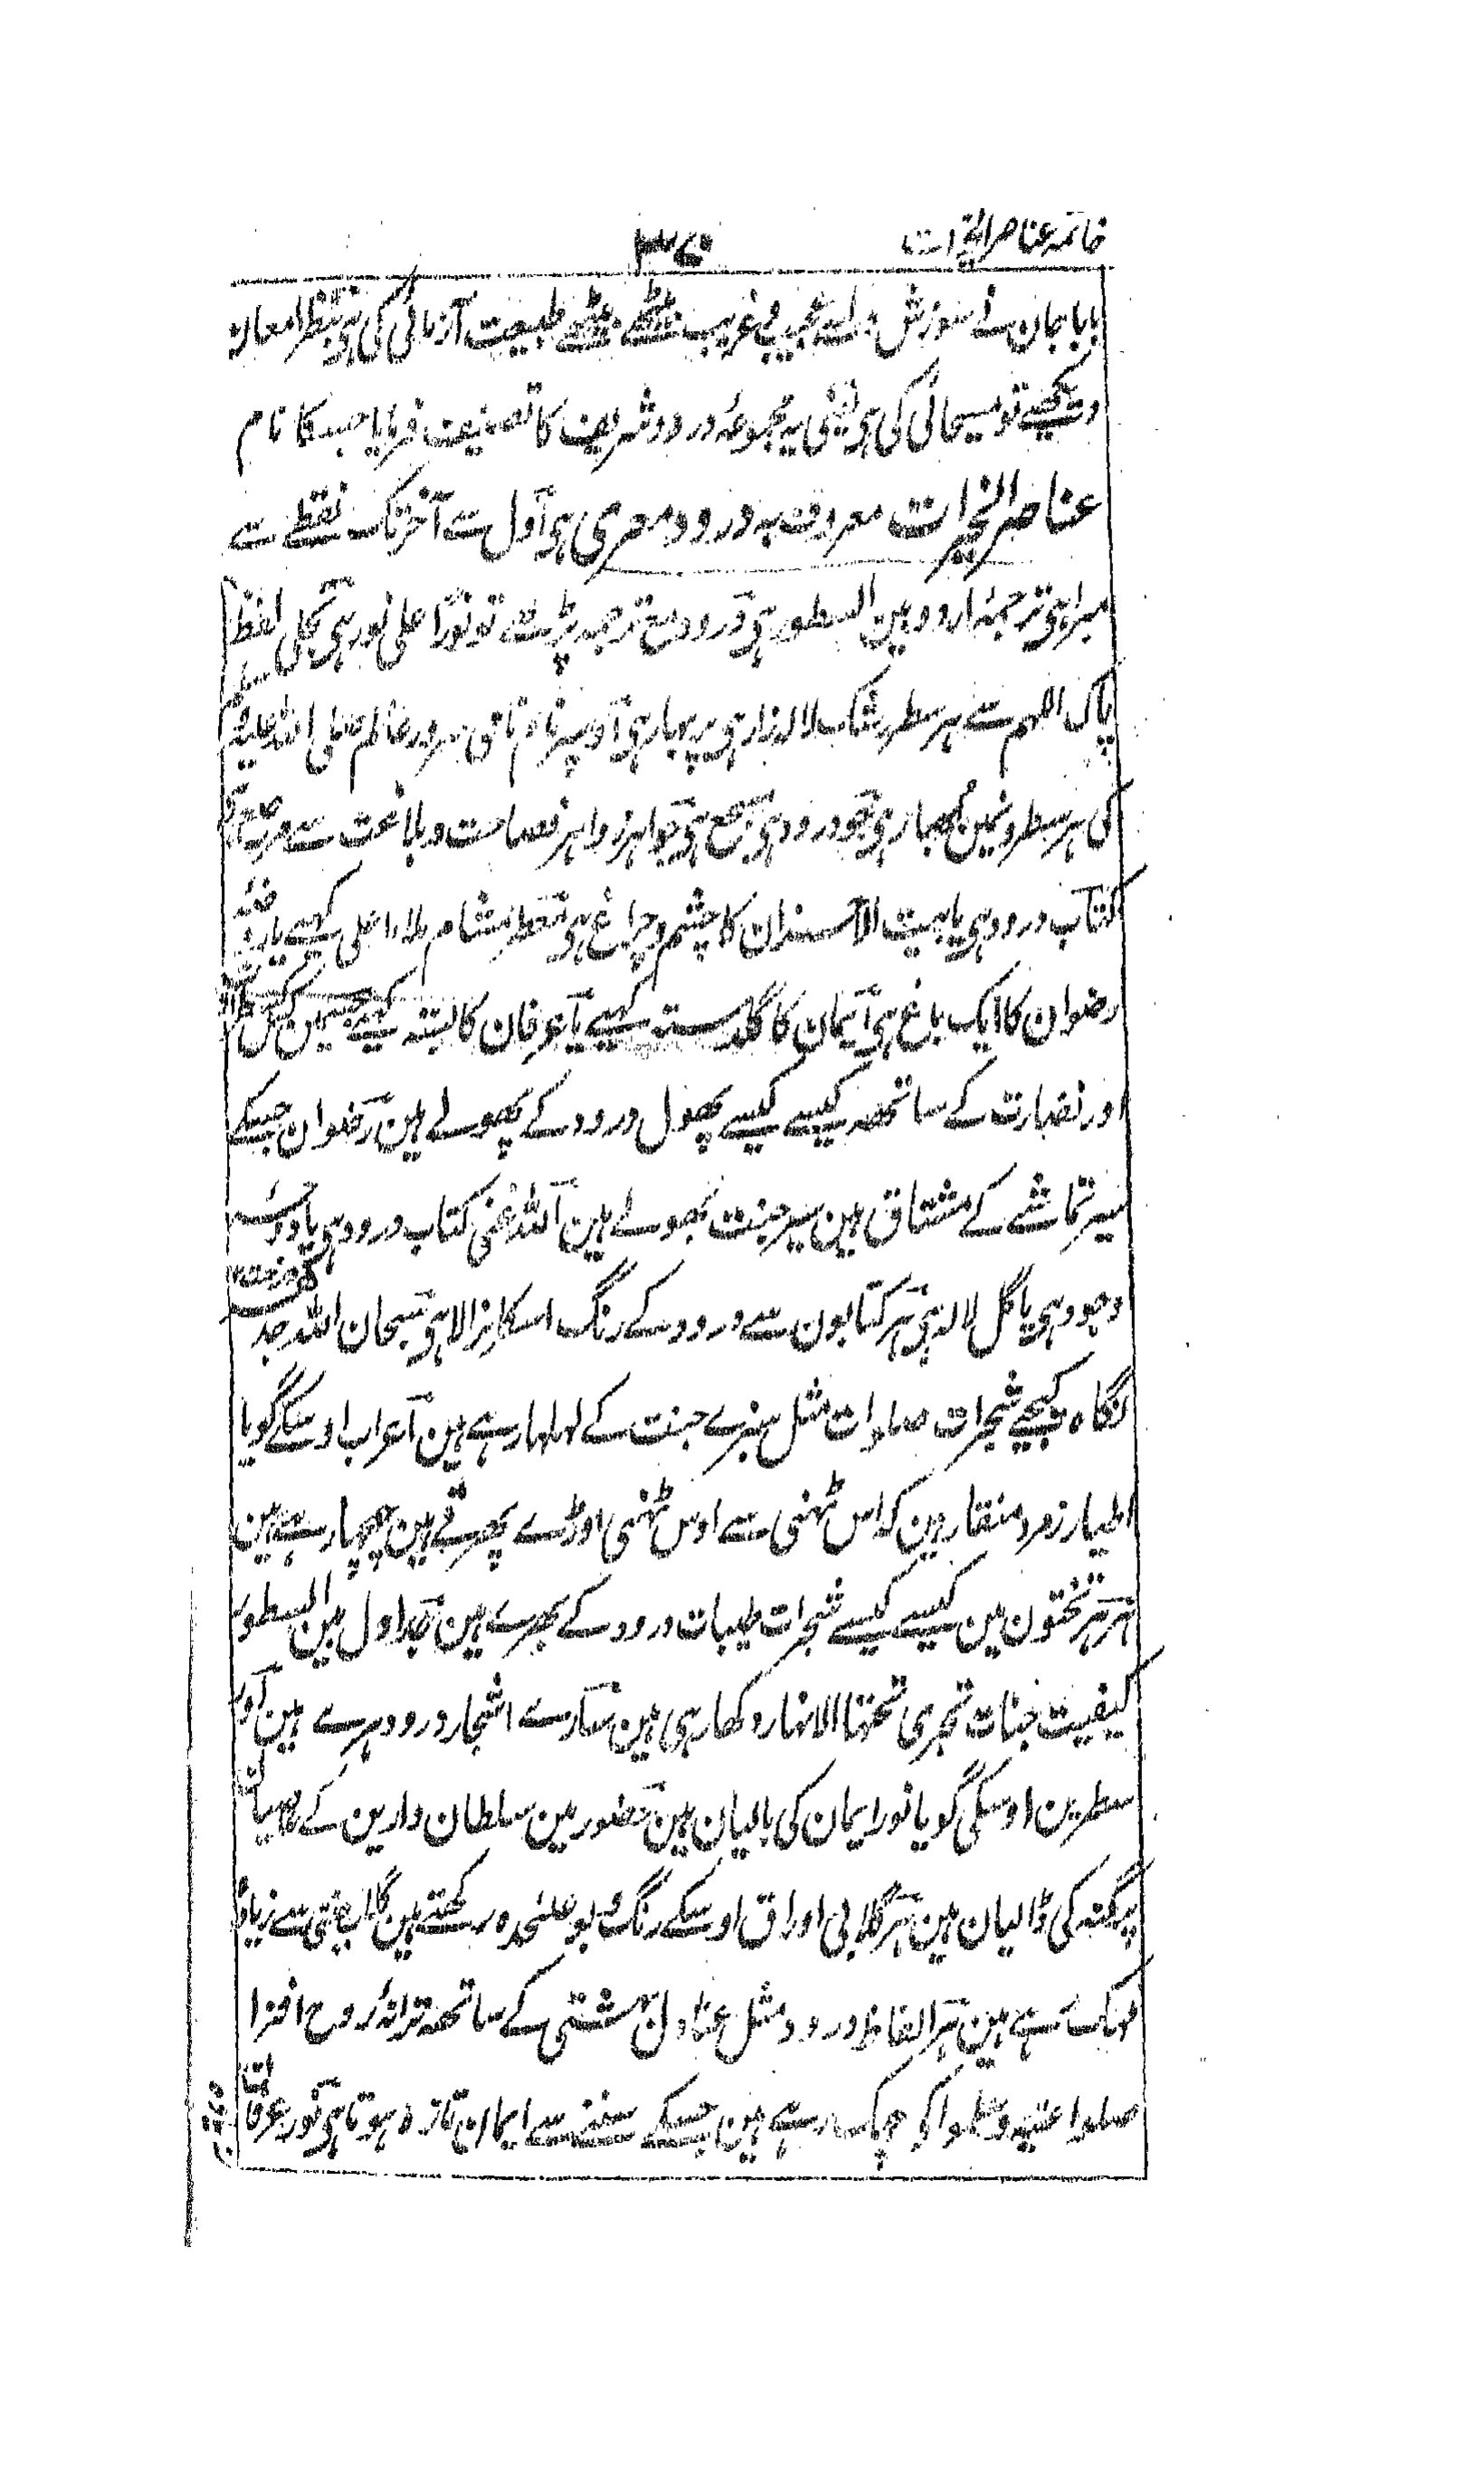 خاتمہ عناصر الخیرات
۳۷۰
بابا جان نے سوزش دل سے عجیب غریب بیٹھے بیٹھے طبیعت آزمائی کی ہی بنظر امعان
دیکھیے تو مسیحائی کی ہی یعنی یہ مجموعۂ درود شریف کا تصنیف فرمایا جسکا نام
عناصر الخیرات معروف بہ درود معری ہی اول سے آخر تک نقطے سے
مبرا ہی ترجمۂ اردو بین السطور ہی درود مع ترجمہ پڑہیے تو نورًا علی نور ہی تجلی لفظ
پاک اللہم سے ہر سطر رشک لالہ زار ہی پر بہار ہی اوپر نام نامی سرور عالم صلی اللہ علیہ وسلم
کی ہر سطرونمین بہار ہی جو درود ہی مرصع ہی جواہر زواہر فصاحت و بلاغت سے
کتاب درود ہی یا بیت الاحزان کا چشم و چراغ ہی معطر مشام ملاء اعلی کہیے یا روضۂ
رضوان کا ایک باغ ہی ایمان کا گلدستہ کہیے یا عرفان کا بستہ کہیے جسمین کس کس طراوت
اور نضارت کے ساتھہ کیسے کیسے پھول درود کے پھولے ہین رضوان جسکے
سیر تماشے کے مشتاق ہین سیر جنت بھولے ہین اللہ غنی کتاب درود ہی یا
وجود ہی یا گل لالہ ہی ہر کتابون سے درود کے رنگ اسکا نرالا ہی سبحان اللہ جد
نگاہ کیجیے شجرات صلوات مثل سبزے جنت کے لہلہا رہے ہین اعراب اوسکے گویا
اطیار زمرد منقار ہین کہ اس ٹہنی سے اوس ٹہنی اوڑے پھرتے ہین چہچہا رہے ہین
ہر ہر تختون مین کیسے کیسے شجرات طیبات درود کے بھرے ہین جداول بین السطور
کیفیت جنات تجری تحتہا الانہار دکھا رہی ہین سارے اشجار درود ہرے ہین اور
سطرین اوسکی گویا نور ایمان کی بالیان ہین حضور مین سلطان دارین کے
پرگنہ کی ڈالیان ہین ہر گلابی اوراق اوسکے رنگ و بو علٰحدہ رکھتے ہین گلاب جنتی سے زیادہ
مہک رہے ہین ہر الفاظ درود مثل عنادل بہشتی کے ساتھہ ترانۂ روح افزا
صلوا علیہ وسلموا کے چہک رہے ہین جسکے سننے سے ایمان تازہ ہوتا ہی نور عرفان